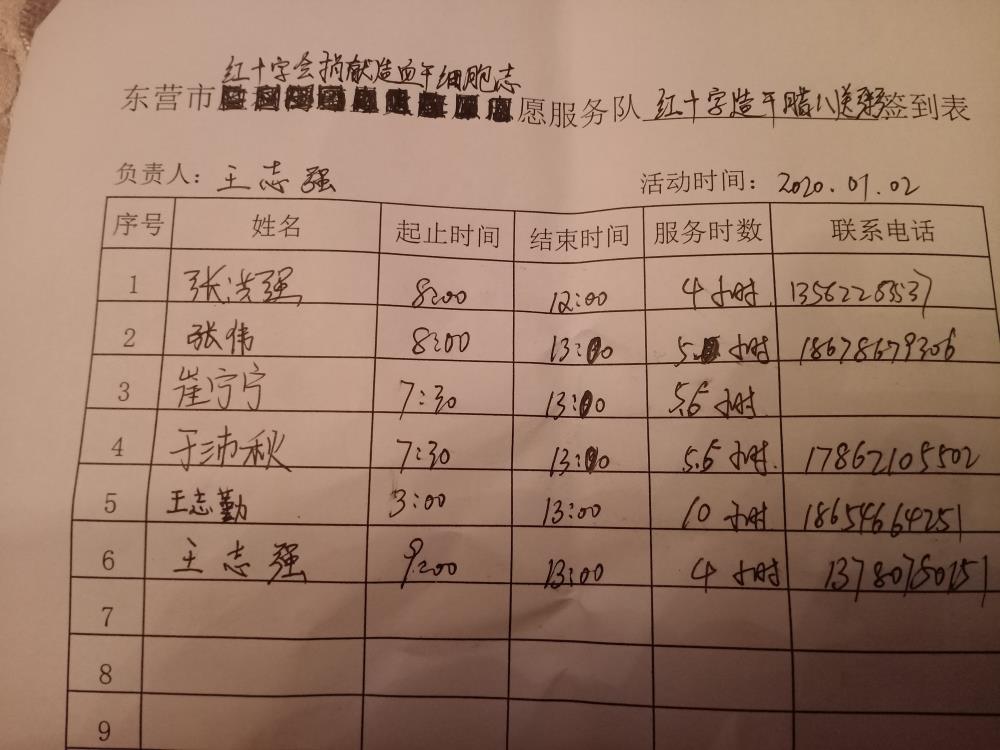 红十字会捐献造血干细胞志
东营市愿服务队 红十字造干腊八送粥签到表
负责人：王志强 活动时间：2020.01.02
序号 姓名 起止时间 结束时间 服务时数 联系电话
1 张洪强 8:00 12:00 4小时 13562283537
2 张伟 8:00 13:00 5小时 18678679306
3 崔宁宁 7:30 13:00 5.5小时
4 于沛秋 7:30 13:00 5.5小时 17862105502
5 王志勤 3:00 13:00 10小时 18654664251
6 王志强 9:00 13:00 4小时 13780750151
7
8
9